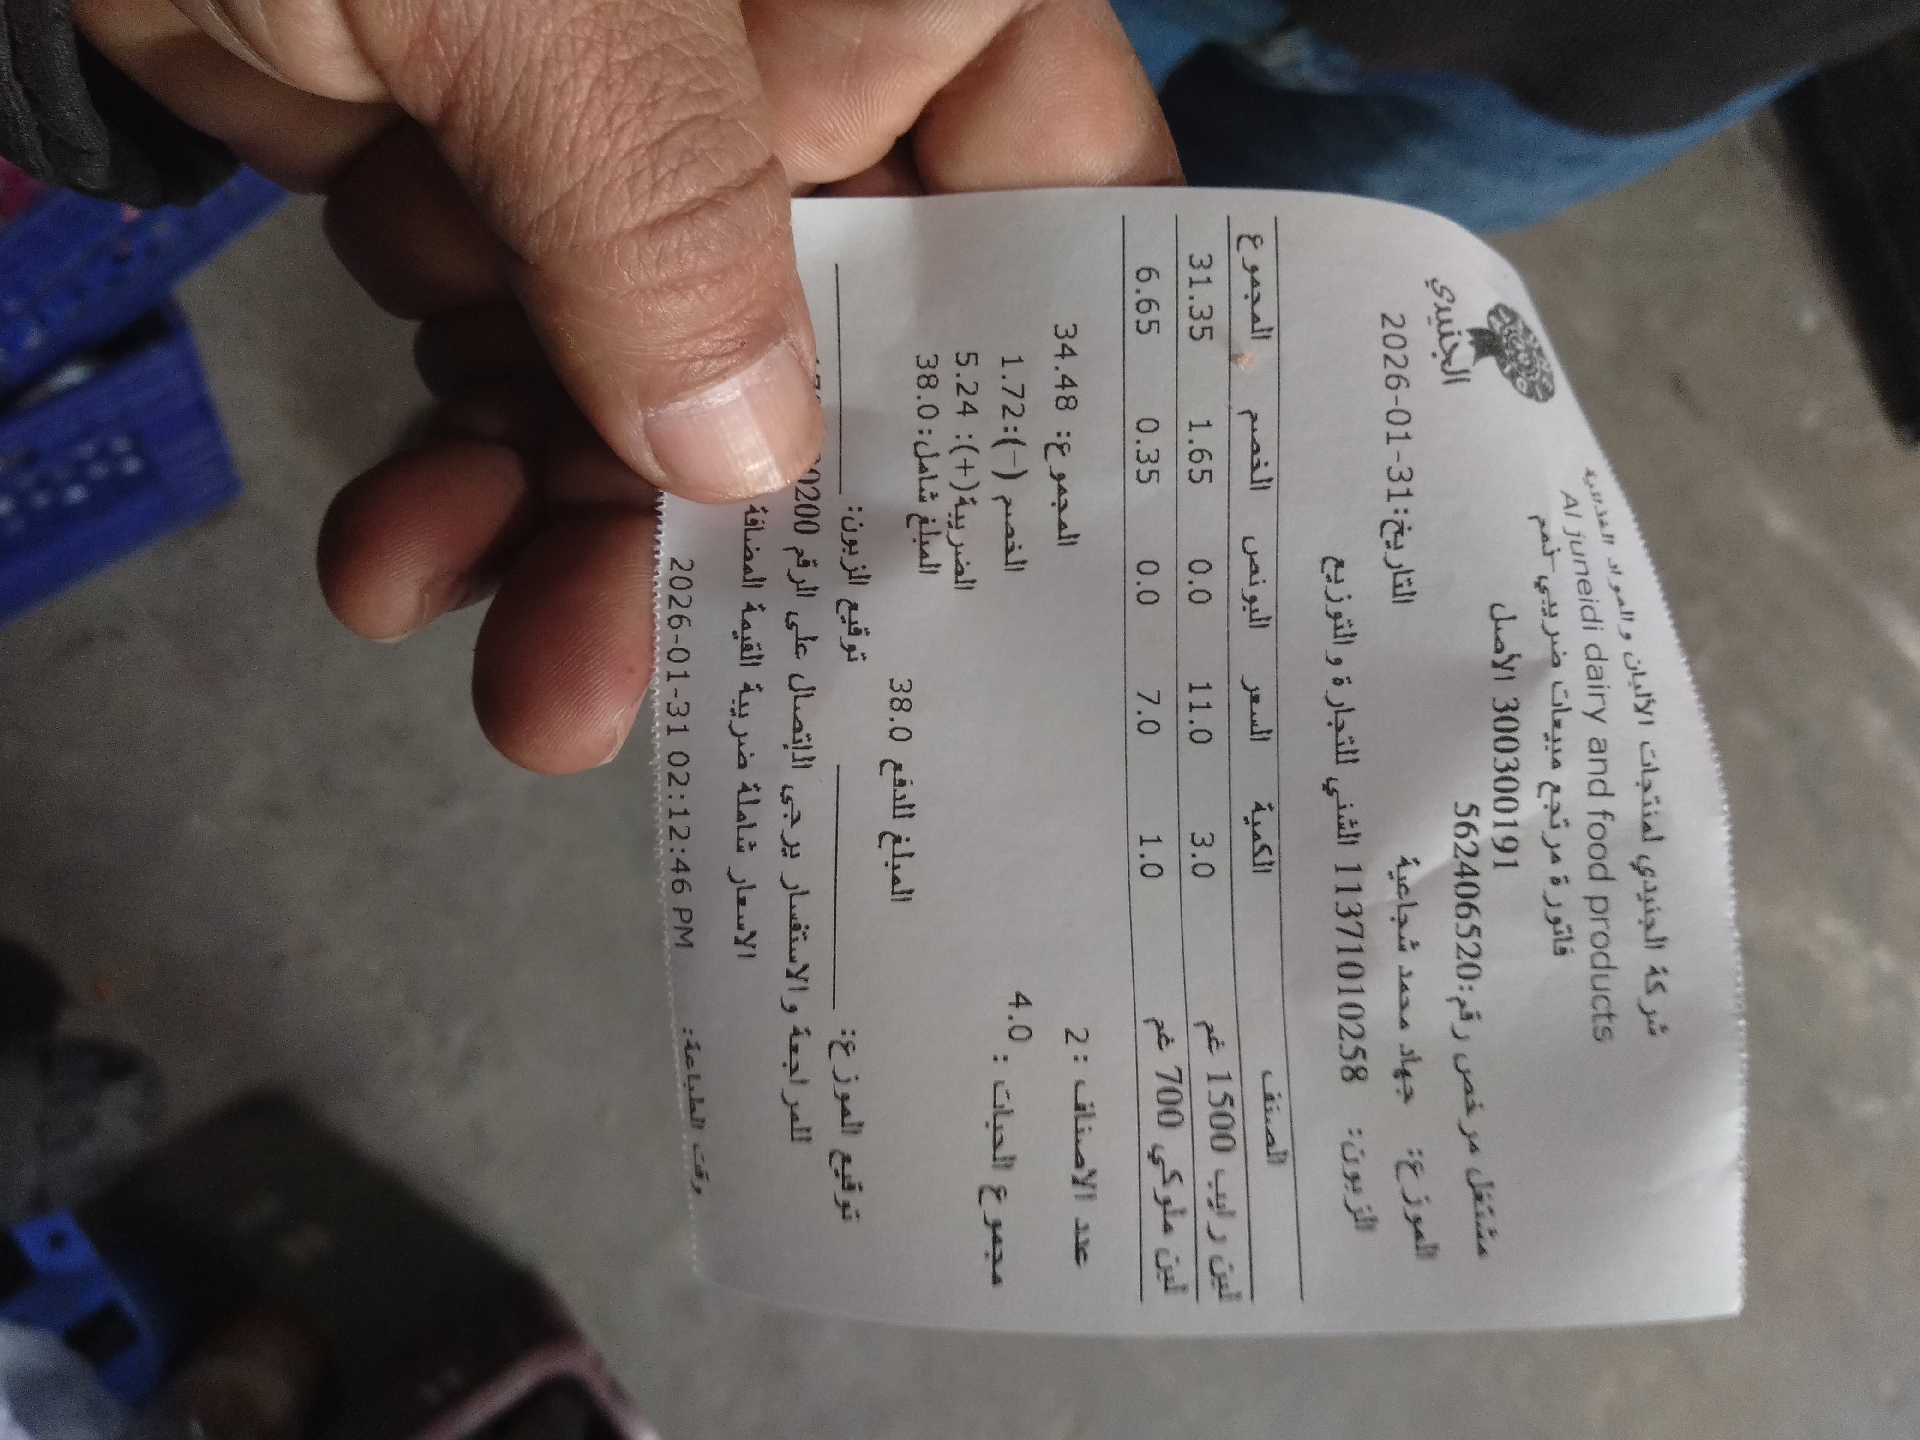 شركة الجنيدي لمنتجات الألبان و المواد الغذائية
Al juneidi dairy and food products
فاتورة مرتجع مبيعات ضريبي-ذمم
300300191 الأصل
الجنيدي
مشتغل مرخص رقم:562406520
التاريخ:2026-01-31
الموزع: جهاد محمد شجاعية
الزبون: 1137101010258 الشني للتجارة و التوزيع
الصنف الكمية السعر البونص الخصم المجموع
لبن رايب 1500 غم 3.0 11.0 0.0 1.65 31.35
لبن ملوكي 700 غم 1.0 7.0 0.0 0.35 6.65
عدد الاصناف : 2 المجموع: 34.48
مجموع الحبات : 4.0 الخصم (-):1.72
الضريبة(+): 5.24
المبلغ شامل: 38.0
المبلغ للدفع 38.0
توقيع الموزع: توقيع الزبون:
للمراجعة و الاستفسار يرجى الاتصال على الرقم
الاسعار شاملة ضريبة القيمة المضافة
وقت الطباعة: 2026-01-31 02:12:46 PM